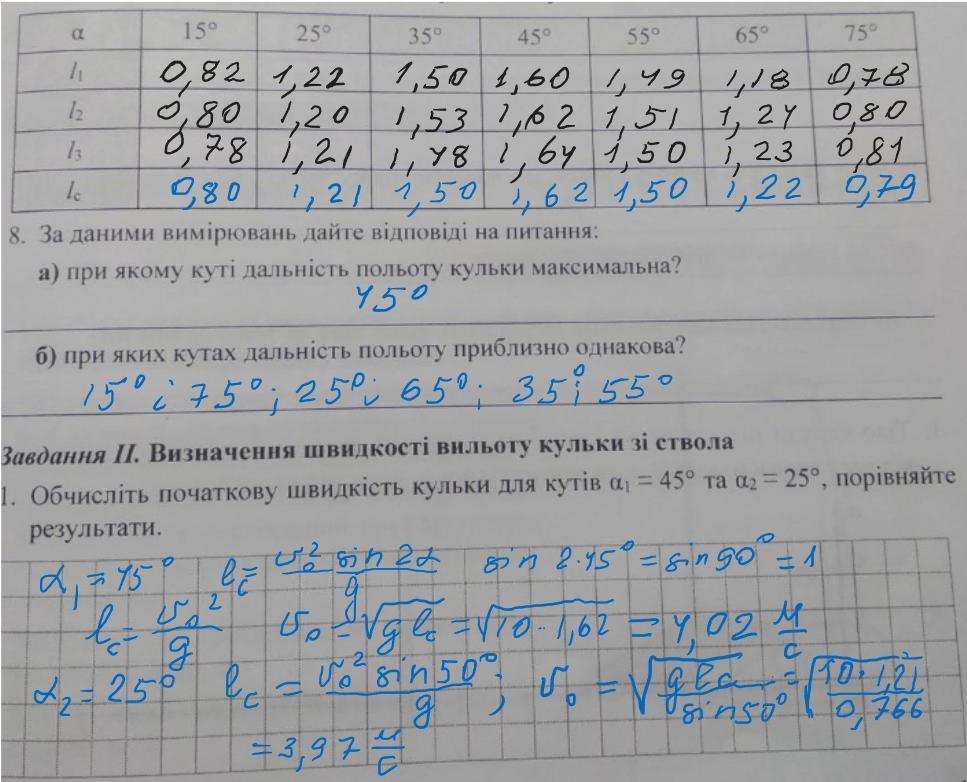 α 15° 25° 35° 45° 55° 65° 75°
l₁ 0,82 1,22 1,50 1,60 1,49 1,18 0,78
l₂ 0,80 1,20 1,53 1,62 1,51 1,24 0,80
l₃ 0,78 1,21 1,48 1,64 1,50 1,23 0,81
lс 0,80 1,21 1,50 1,62 1,50 1,22 0,79
8. За даними вимірювань дайте відповіді на питання:
а) при якому куті дальність польоту кульки максимальна?
45°
б) при яких кутах дальність польоту приблизно однакова?
15° і 75°; 25° і 65°; 35° і 55°
Завдання ІІ. Визначення швидкості вильоту кульки зі ствола
1. Обчисліть початкову швидкість кульки для кутів α₁ = 45° та α₂ = 25°, порівняйте
результати.
α₁ = 45° lс = υ₀² sin 2α / g sin 2·45° = sin 90° = 1
lс = υ₀² / g υ₀ = √(g lс) = √(10·1,62) = 4,02 м/с
α₂ = 25° lс = υ₀² sin 50° / g ; υ₀ = √(g lс / sin 50°) = √(10·1,21 / 0,766)
= 3,97 м/с